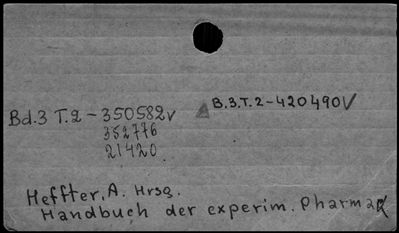 Bd.3 T.2 - 350582v
B.3.T.2-420490V
352776
21420
Heffter, A. Hrsg.
Handbuch der experim. Pharmak